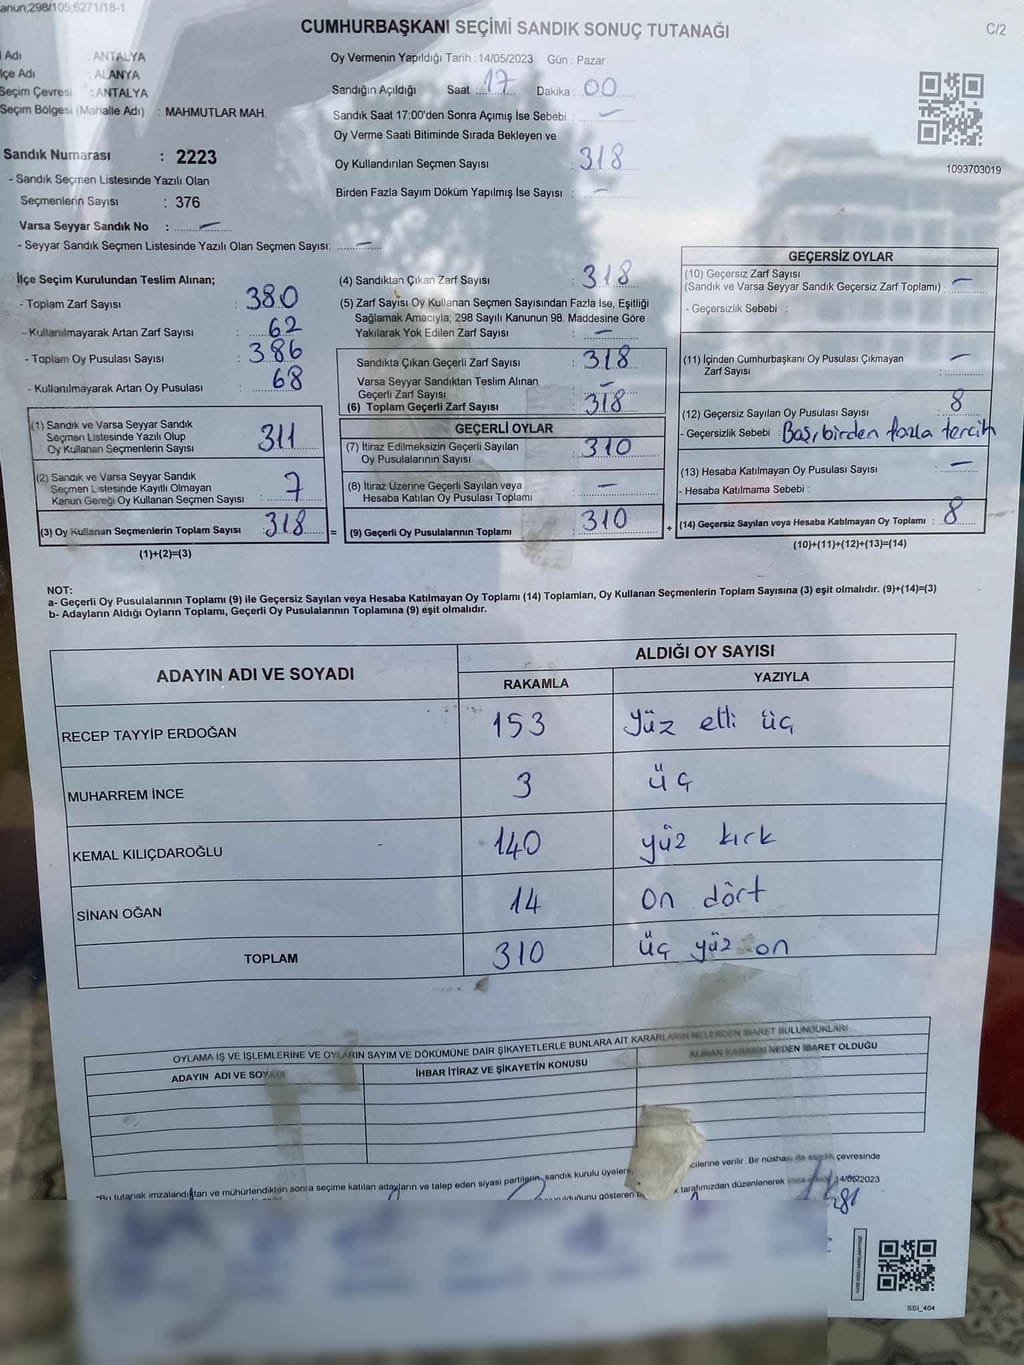 anun;298/105;6271/18-1
CUMHURBAŞKANI SEÇİMİ SANDIK SONUÇ TUTANAĞI
C/2
Adı : ANTALYA
lçe Adı : ALANYA
Seçim Çevresi : ANTALYA
Seçim Bölgesi (Mahalle Adı) : MAHMUTLAR MAH.
Oy Vermenin Yapıldığı Tarih : 14/05/2023 Gün : Pazar
Sandığın Açıldığı Saat : 17 Dakika : 00
Sandık Saat 17:00'den Sonra Açımış İse Sebebi : –
Oy Verme Saati Bitiminde Sırada Bekleyen ve
Oy Kullandırılan Seçmen Sayısı : 318
Birden Fazla Sayım Döküm Yapılmış İse Sayısı : –
1093703019
Sandık Numarası : 2223
- Sandık Seçmen Listesinde Yazılı Olan
Seçmenlerin Sayısı : 376
Varsa Seyyar Sandık No : –
- Seyyar Sandık Seçmen Listesinde Yazılı Olan Seçmen Sayısı: –
İlçe Seçim Kurulundan Teslim Alınan;
- Toplam Zarf Sayısı : 380
- Kullanılmayarak Artan Zarf Sayısı : 62
- Toplam Oy Pusulası Sayısı : 386
- Kullanılmayarak Artan Oy Pusulası : 68
(1) Sandık ve Varsa Seyyar Sandık
Seçmen Listesinde Yazılı Olup
Oy Kullanan Seçmenlerin Sayısı : 311
(2) Sandık ve Varsa Seyyar Sandık
Seçmen Listesinde Kayıtlı Olmayan
Kanun Gereği Oy Kullanan Seçmen Sayısı : 7
(3) Oy Kullanan Seçmenlerin Toplam Sayısı : 318 =
(1)+(2)=(3)
(4) Sandıktan Çıkan Zarf Sayısı : 318
(5) Zarf Sayısı Oy Kullanan Seçmen Sayısından Fazla İse, Eşitliği
Sağlamak Amacıyla, 298 Sayılı Kanunun 98. Maddesine Göre
Yakılarak Yok Edilen Zarf Sayısı : –
Sandıkta Çıkan Geçerli Zarf Sayısı : 318
Varsa Seyyar Sandıktan Teslim Alınan
Geçerli Zarf Sayısı : –
(6) Toplam Geçerli Zarf Sayısı : 318
GEÇERLİ OYLAR
(7) İtiraz Edilmeksizin Geçerli Sayılan
Oy Pusulalarının Sayısı : 310
(8) İtiraz Üzerine Geçerli Sayılan veya
Hesaba Katılan Oy Pusulası Toplamı : –
(9) Geçerli Oy Pusulalarının Toplamı : 310 +
GEÇERSİZ OYLAR
(10) Geçersiz Zarf Sayısı
(Sandık ve Varsa Seyyar Sandık Geçersiz Zarf Toplamı) : –
- Geçersizlik Sebebi :
(11) İçinden Cumhurbaşkanı Oy Pusulası Çıkmayan
Zarf Sayısı : –
(12) Geçersiz Sayılan Oy Pusulası Sayısı : 8
- Geçersizlik Sebebi : birden fazla tercih
(13) Hesaba Katılmayan Oy Pusulası Sayısı : –
- Hesaba Katılmama Sebebi :
(14) Geçersiz Sayılan veya Hesaba Katılmayan Oy Toplamı : 8
(10)+(11)+(12)+(13)=(14)
NOT:
a- Geçerli Oy Pusulalarının Toplamı (9) ile Geçersiz Sayılan veya Hesaba Katılmayan Oy Toplamı (14) Toplamları, Oy Kullanan Seçmenlerin Toplam Sayısına (3) eşit olmalıdır. (9)+(14)=(3)
b- Adayların Aldığı Oyların Toplamı, Geçerli Oy Pusulalarının Toplamına (9) eşit olmalıdır.
ADAYIN ADI VE SOYADI
ALDIĞI OY SAYISI
RAKAMLA YAZIYLA
RECEP TAYYİP ERDOĞAN 153 Yüz elli üç
MUHARREM İNCE 3 üç
KEMAL KILIÇDAROĞLU 140 yüz kırk
SİNAN OĞAN 14 on dört
TOPLAM 310 üç yüz on
OYLAMA İŞ VE İŞLEMLERİNE VE OYLARIN SAYIM VE DÖKÜMÜNE DAİR ŞİKAYETLERLE BUNLARA AİT KARARLARIN NELERDEN İBARET BULUNDUKLARI
ADAYIN ADI VE SOYADI İHBAR İTİRAZ VE ŞİKAYETİN KONUSU ALINAN KARARIN NEDEN İBARET OLDUĞU
"Bu tutanak imzalandıktan ve mühürlendikten sonra seçime katılan adayların ve talep eden siyasi partilerin, sandık kurulu üyeleri cilerine verilir. Bir nüshası da sandık çevresinde
ulduğunu gösteren tarafımızdan düzenlenerek 14/05/2023
SSİ_404